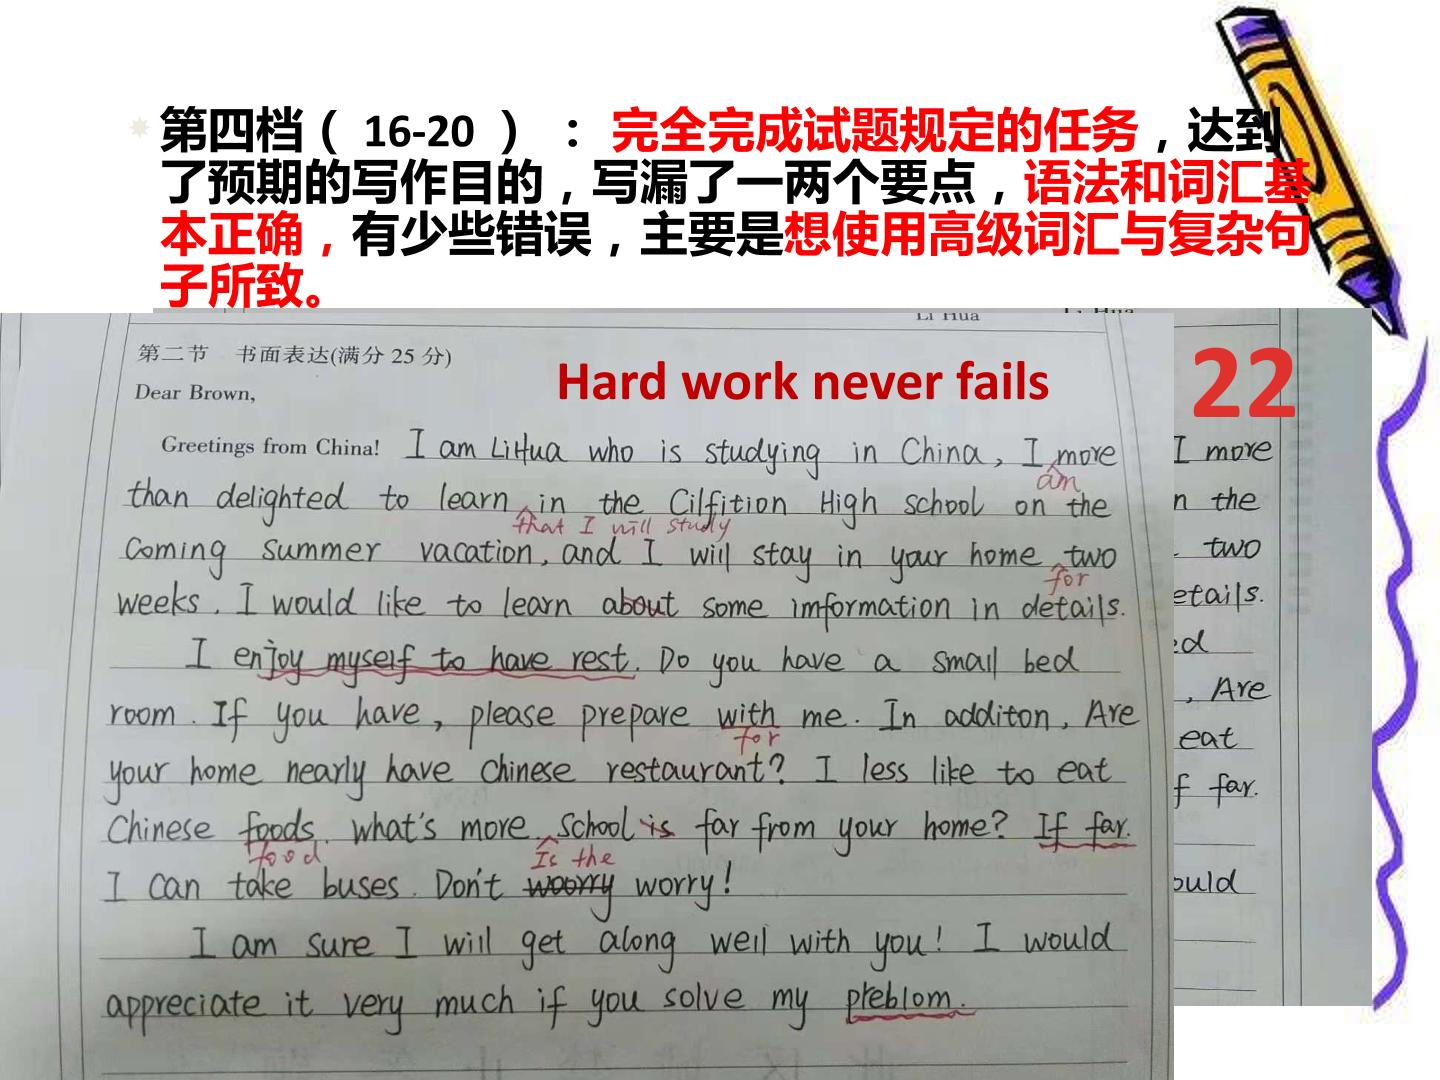 第四档（ 16-20 ）：完全完成试题规定的任务，达到
了预期的写作目的，写漏了一两个要点，语法和词汇基
本正确，有少些错误，主要是想使用高级词汇与复杂句
子所致。
Li Hua
Li Hua
第二节 书面表达(满分 25 分)
Hard work never fails
22
Dear Brown,
Greetings from China! I am LiHua who is studying in China, I more
am
than delighted to learn in the Cilfition High school on the
that I will study
coming summer vacation, and I will stay in your home two
for
weeks. I would like to learn about some imformation in details.
I enjoy myself to have rest. Do you have a small bed
room. If you have, please prepare with me. In additon, Are
for
your home nearly have Chinese restaurant? I less like to eat
Chinese foods. what's more, school is far from your home? If far.
food
Is the
I can take buses. Don't woorry worry!
I am sure I will get along well with you! I would
appreciate it very much if you solve my preblom.
I more
n the
two
etails.
ed
, Are
eat
f far.
ould